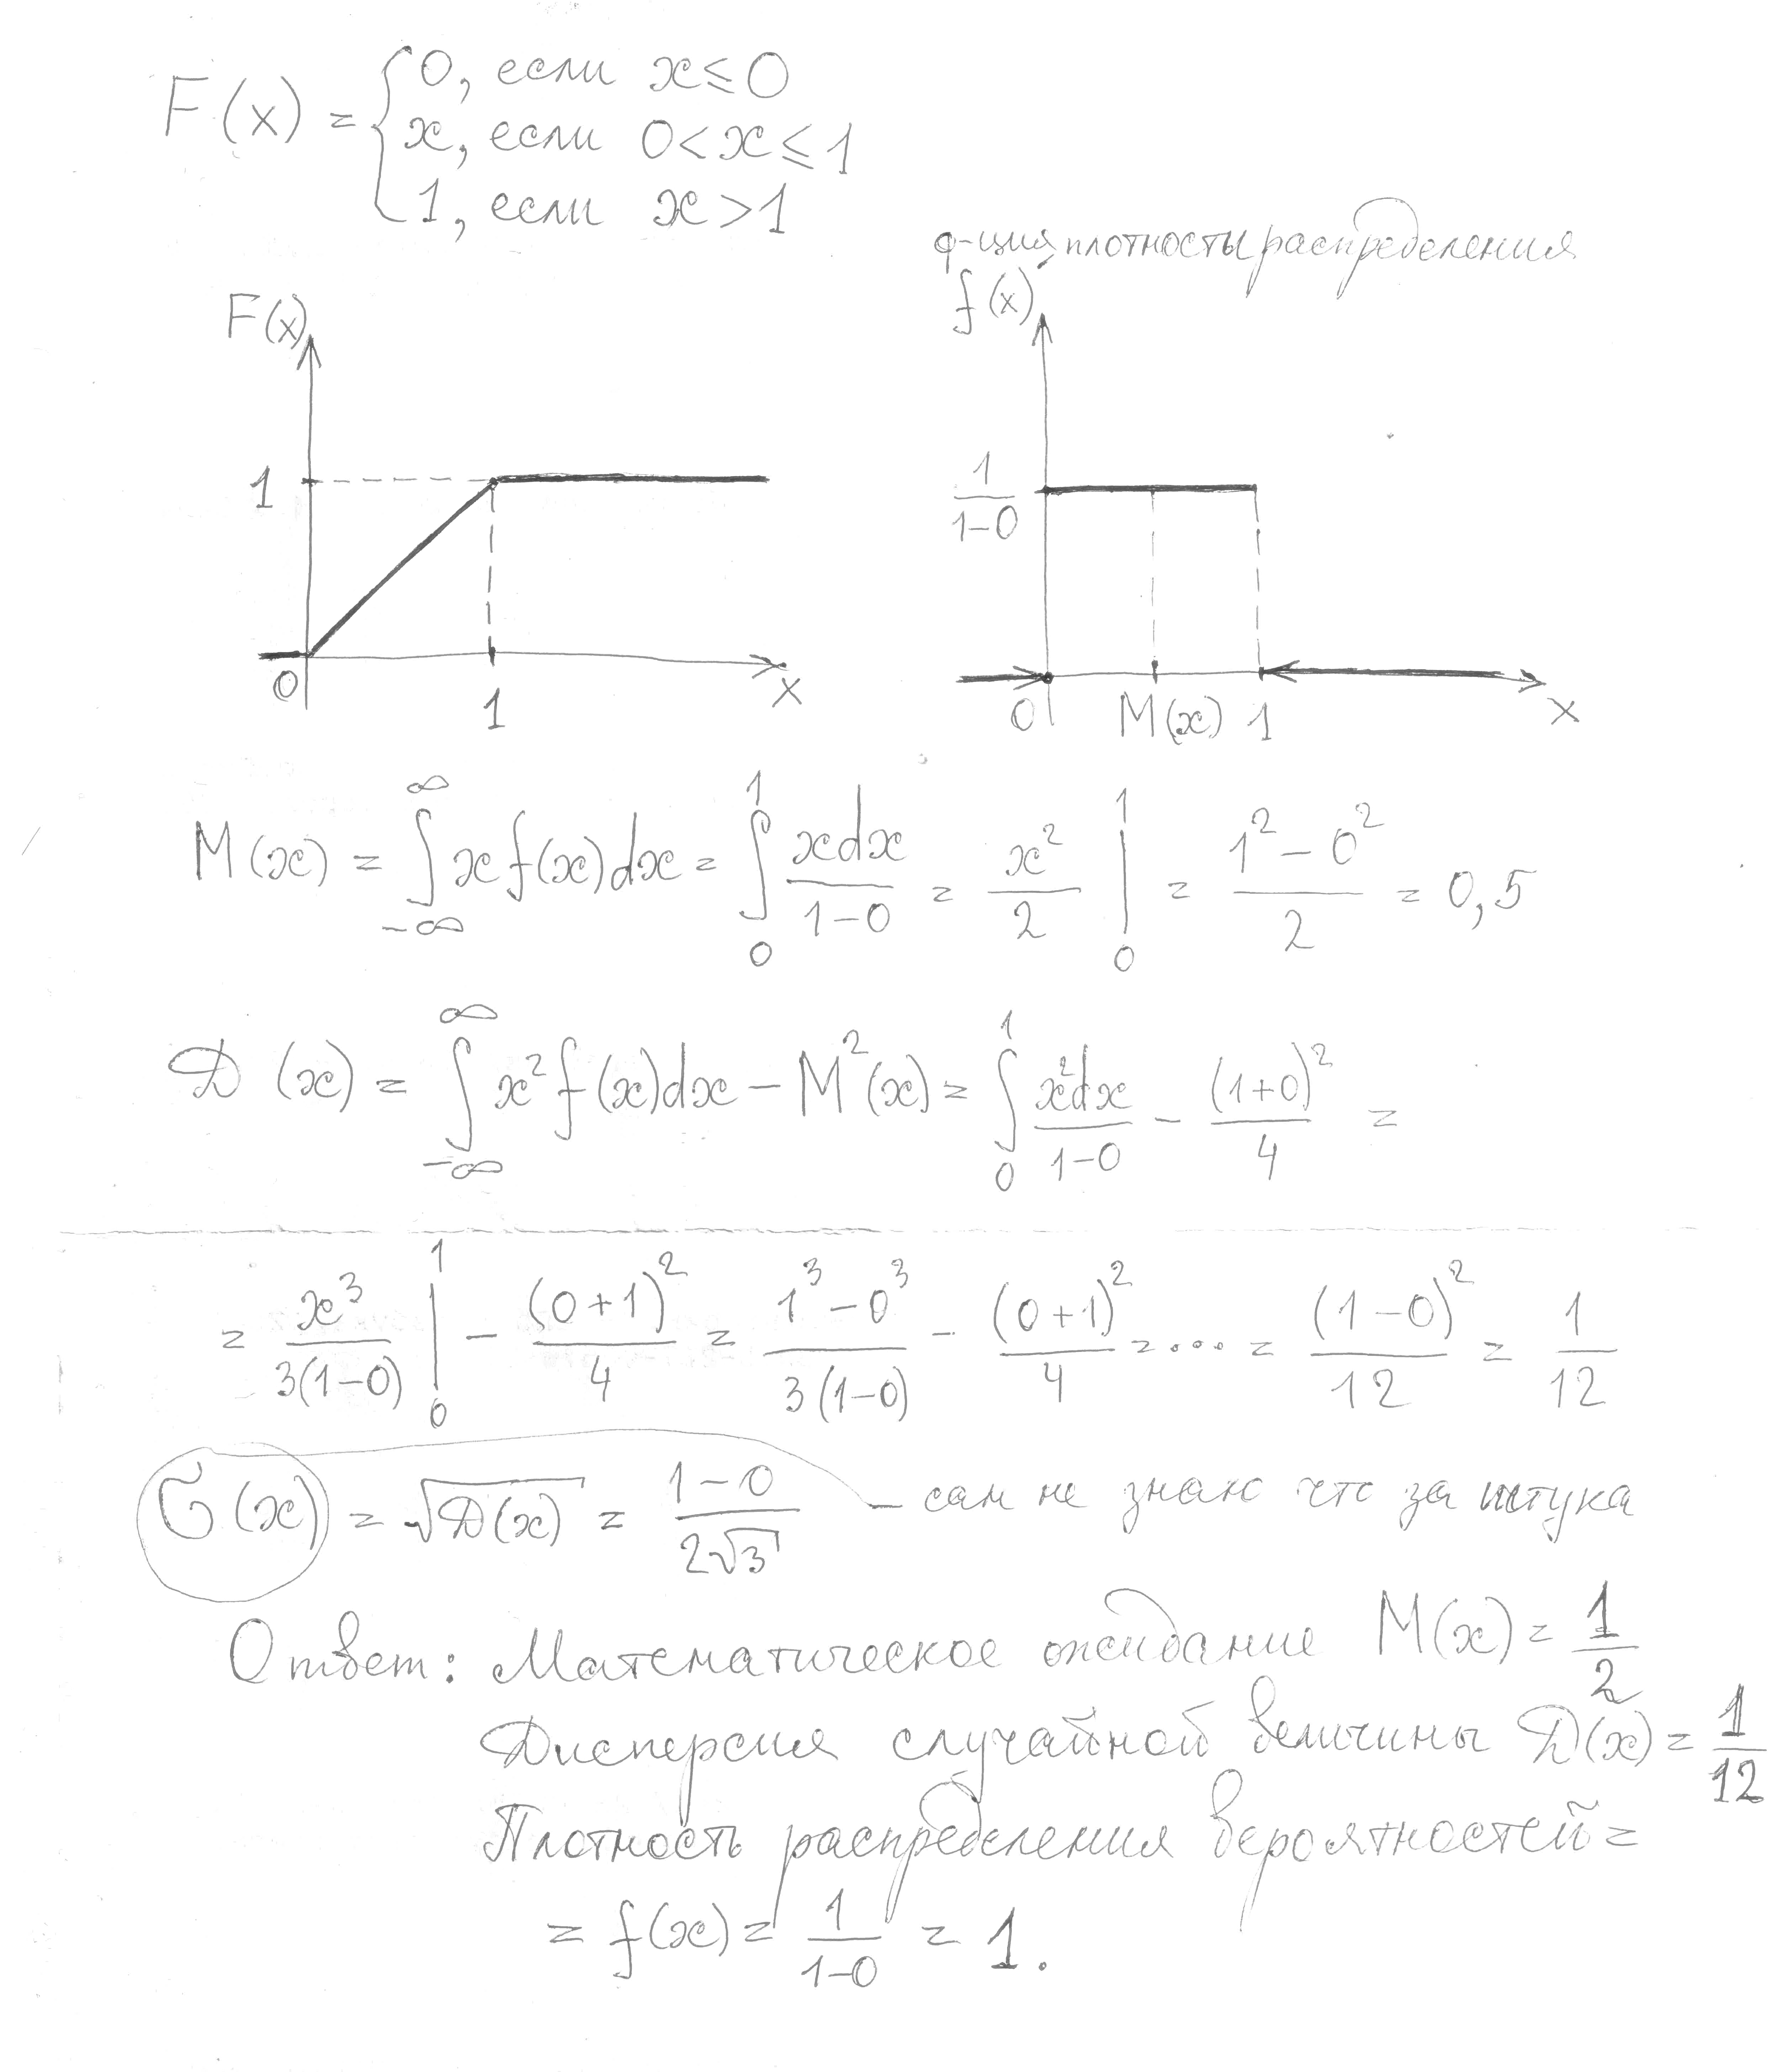 F(x) = { 0, если x ≤ 0
x, если 0 < x ≤ 1
1, если x > 1
ф-ция плотносты распределения
F(x)
f(x)
1
1/(1-0)
0 1 x
0 M(x) 1 x
M(x) = ∫_{-∞}^{∞} x f(x) dx = ∫_0^1 xdx/(1-0) = x²/2 |_0^1 = (1² - 0²)/2 = 0,5
D(x) = ∫_{-∞}^{∞} x² f(x) dx - M²(x) = ∫_0^1 x²dx/(1-0) - (1+0)²/4 =
= x³/(3(1-0)) |_0^1 - (0+1)²/4 = (1³ - 0³)/(3(1-0)) - (0+1)²/4 = .... = (1-0)²/12 = 1/12
σ(x) = √D(x) = (1-0)/(2√3) - сам не знаю что за штука
Ответ: Математическое ожидание M(x) = 1/2
Дисперсия случайной величины D(x) = 1/12
Плотность распределения вероятностей =
= f(x) = 1/(1-0) = 1.